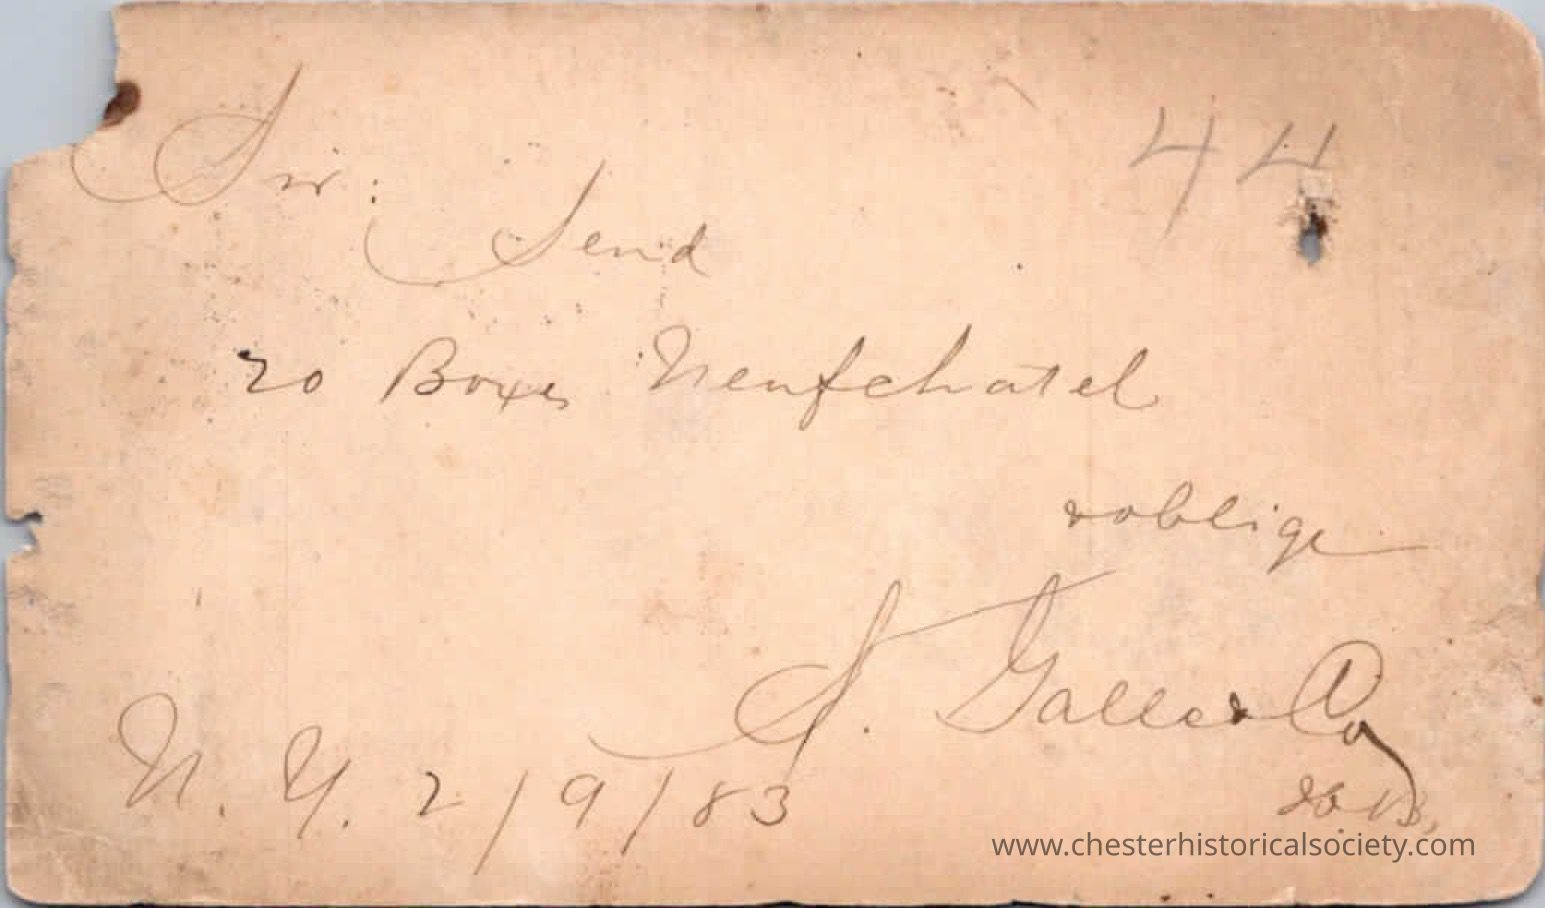 44
Sir:
Send
20 Boxes Neufchatel
& oblige
S. Galle & Co
N. Y. 2/9/83
www.chesterhistoricalsociety.com